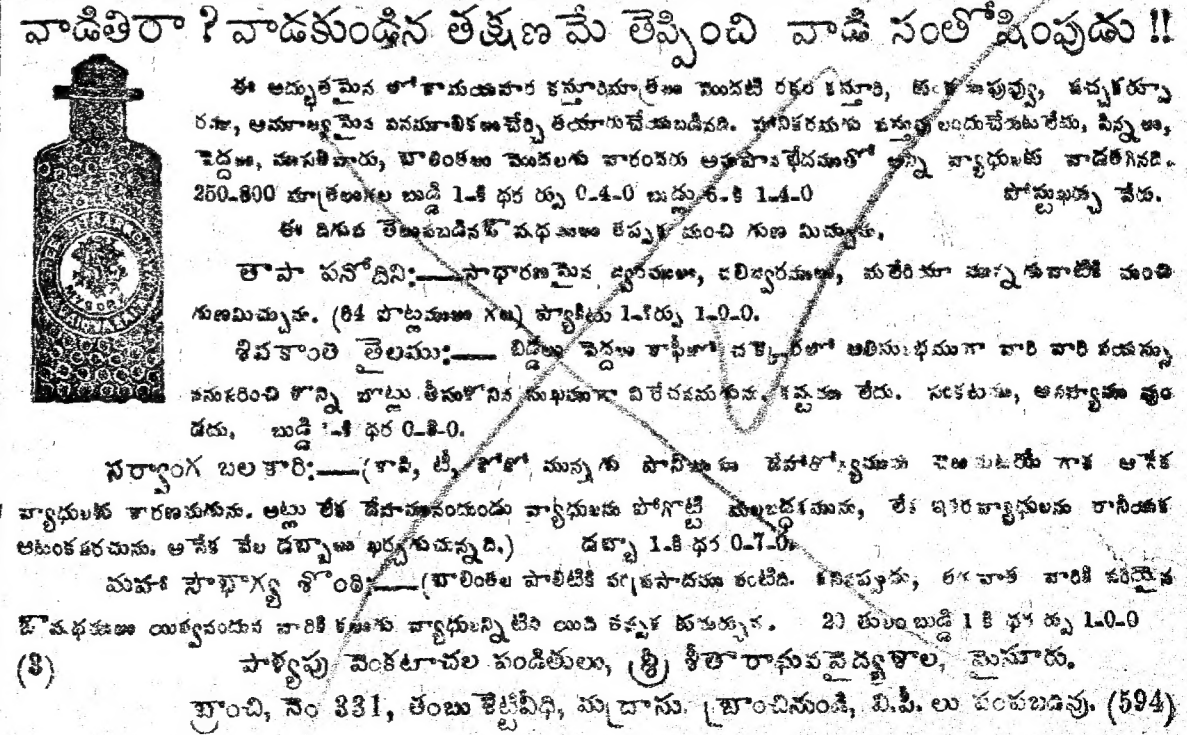 వాడితిరా ? వాడకుండిన తక్షణమే తెప్పించి వాడి సంతోషింపుడు !!
ఈ అద్భుతమైన లోకామయహర కస్తూరిమాత్రలు మొదటి రకపు కస్తూరి, కుంకుమపువ్వు, పచ్చకర్పూ
రము, అమూల్యమైన వనమూలికలుచేర్చి తయారుచేయబడినది. హానికరమగు వస్తువులందుచేరుటలేదు, పిన్నలు,
పెద్దలు, ముసలివారు, బాలింతలు మొదలగు వారందరు అనుపానభేదములతో అన్ని వ్యాధులకు వాడతగినది.
250-300 మాత్రలుగల బుడ్డి 1-కి ధర రు 0-4-0 బుడ్లు 6-కి 1-4-0 పోస్టుఖర్చు వేరు.
ఈ దిగువ తెలుపబడిన ఔషధములు తప్పక మంచి గుణ మిచ్చును.
తాపా పనోదిని:—సాధారణమైన జ్వరములు, చలిజ్వరములు, మలేరియా మున్నగువాటికి మంచి
గుణమిచ్చును. (64 పొట్లములు గల) ప్యాకెటు 1-కిరు 1-0-0.
శివకాంతి తైలము:— బిడ్డలు పెద్దలు కాఫీలో చక్కెరలో అతిసులభముగా వారి వారి వయస్సు
ననుసరించి కొన్ని బొట్లు తీసుకొనిన సుఖముగా విరేచనమగును. కష్టము లేదు. సంకటము, అసహ్యము వుం
డదు, బుడ్డి 1-కి ధర 0-8-0.
సర్వాంగ బలకారి:—(కాఫి, టీ, కోకో మున్నగు పానీయములు దేహారోగ్యమును చెరుచుటయే గాక అనేక
వ్యాధులకు కారణమగును. అట్లు లేక దేహమునందుండు వ్యాధులను పోగొట్టి మలబద్ధకమును, లేక ఇతరవ్యాధులను రానీయక
ఆటంకపరచును. అనేక వేల డబ్బాలు ఖర్చగుచున్నది.) డబ్బా 1-కి ధర 0-7-0.
మహా సౌభాగ్య శొంఠి:—(బాలింతల పాలిటికి వరప్రసాదము వంటిది. కనినప్పుడు, తరువాత వారికి సరియైన
ఔషధములు యివ్వనందున వారికి కలుగు వ్యాధులన్నిటిని యిది తప్పక కుదుర్చును. 20 తులం బుడ్డి 1 కి ధర రు 1-0-0
(కి) పాళ్యపు వెంకటాచల పండితులు, శ్రీ సీతారాఘవవైద్యశాల, మైసూరు.
బ్రాంచి, నెం 331, తంబు శెట్టివీధి, మద్రాసు. బ్రాంచినుండి, వి.పీ. లు పంపబడవు. (594)